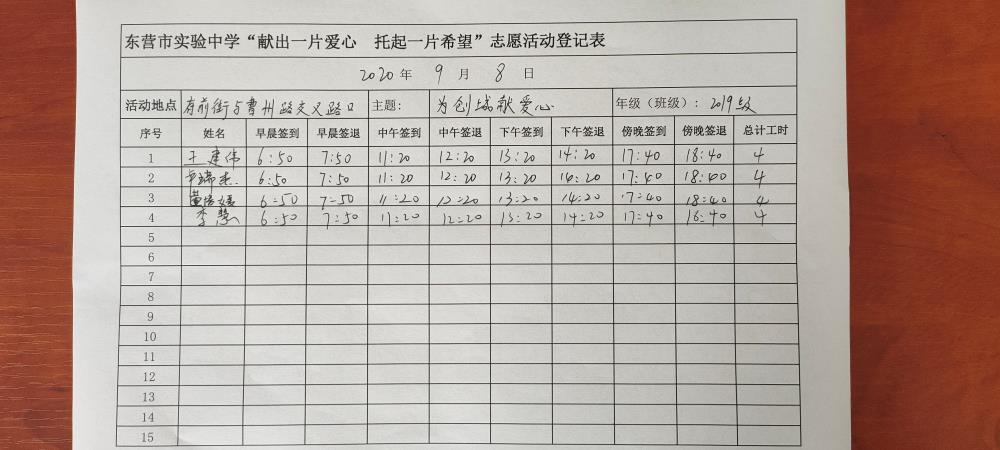 东营市实验中学“献出一片爱心　托起一片希望”志愿活动登记表
2020 年 9 月 8 日
活动地点 府前街与曹州路交叉路口 主题: 为创城献爱心 年级（班级）: 2019级
序号 姓名 早晨签到 早晨签退 中午签到 中午签退 下午签到 下午签退 傍晚签到 傍晚签退 总计工时
1 王建伟 6:50 7:50 11:20 12:20 13:20 14:20 17:40 18:40 4
2 6:50 7:50 11:20 12:20 13:20 14:20 17:40 18:40 4
3 6:50 7:50 11:20 12:20 13:20 14:20 17:40 18:40 4
4 李慧 6:50 7:50 11:20 12:20 13:20 14:20 17:40 18:40 4
5
6
7
8
9
10
11
12
13
14
15